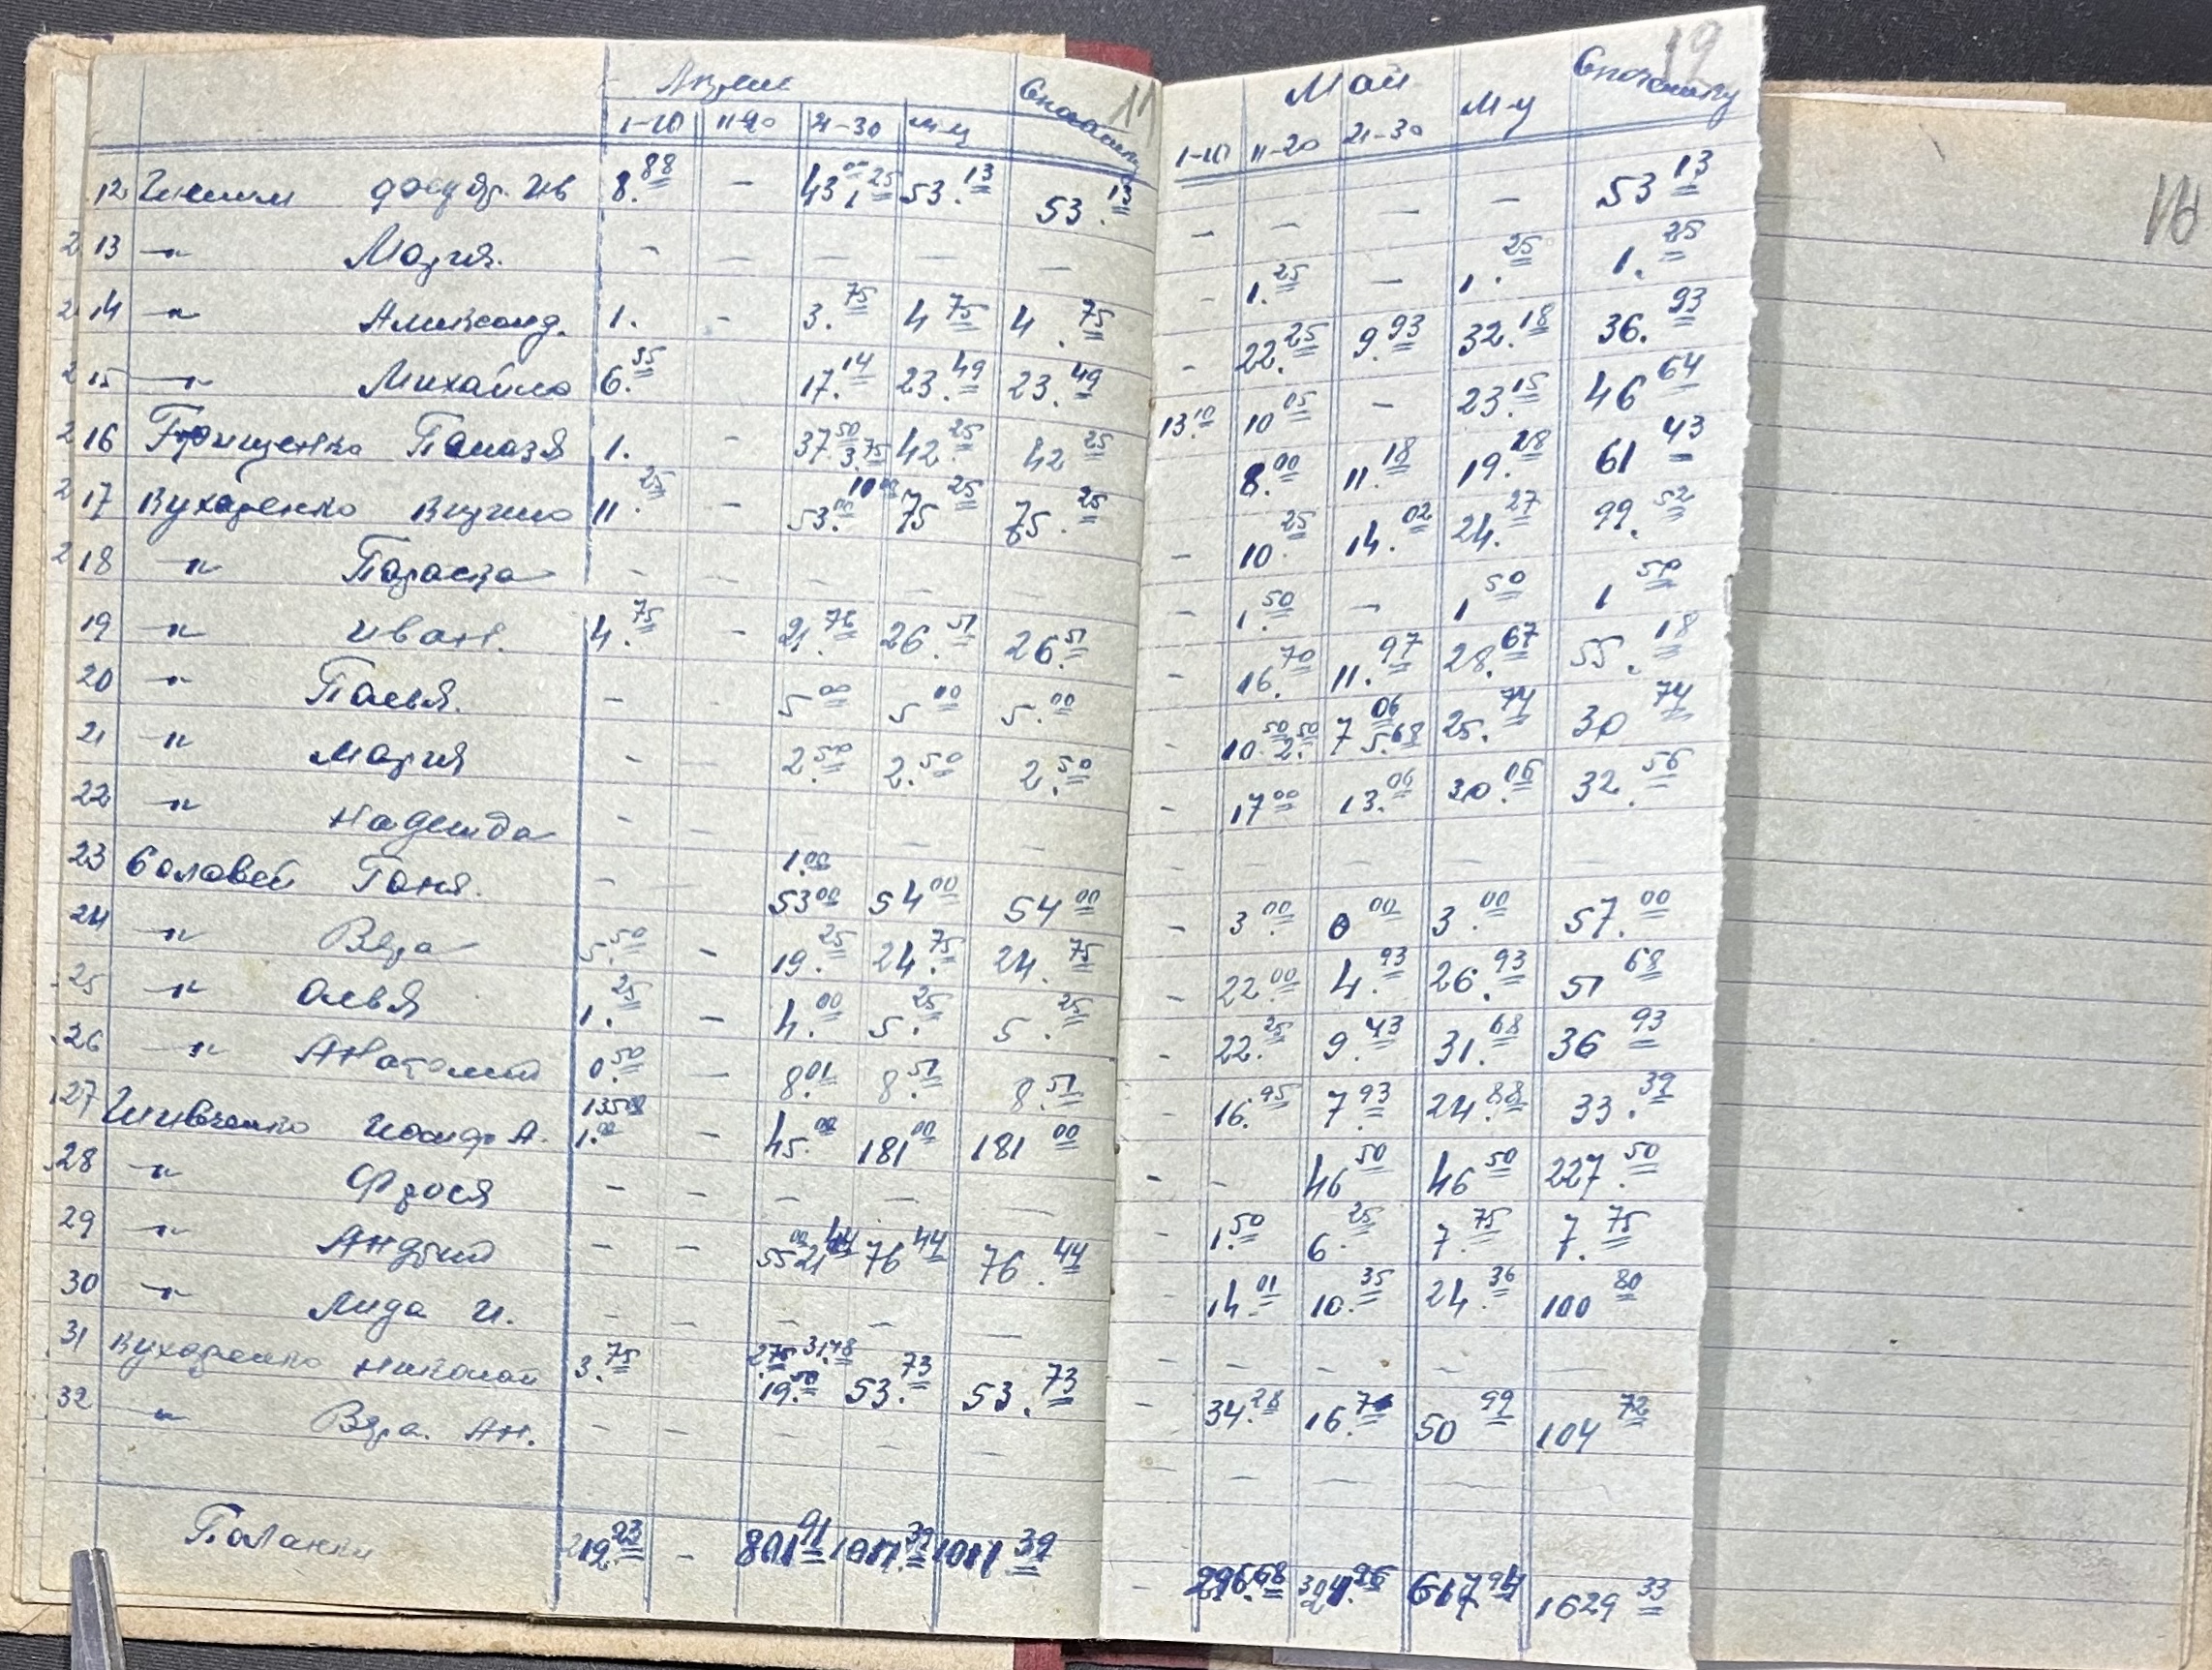 11 Май 12
1-10 11-20 21-30 м-ц 1-10 11-20 21-30 м-ц
12 Ив 8.88 - 43.00 1.25 53.13 53.13 - - - - 53.13
2 13 -"- Мария. - - - - - - 1.25 - 1.25 1.25
2 14 -"- Александ. 1. - 3.75 4.75 4.75 - 22.25 9.93 32.18 36.93
2 15 -"- Михайло 6.35 17.14 23.49 23.49 13.10 10.05 - 23.15 46.64
2 16 Грищенко 1. - 37.50 3.75 42.25 42.25 8.00 11.18 19.18 61.43
2 17 Кухаренко 11.25 - 53.00 10.00 75.25 75.25 - 10.25 14.02 24.27 99.52
2 18 -"- Параска - - - - - - 1.50 - 1.50 1.50
19 -"- Иван. 4.75 - 21.76 26.51 26.51 - 16.70 11.97 28.67 55.18
20 -"- - 5.00 5.00 5.00 - 10.50 2.50 7.06 5.68 25.74 30.74
21 -"- Мария - - 2.50 2.50 2.50 - 17.00 13.06 30.06 32.56
22 -"- Надежда - - - - - - - -
23 Соловей Таня. - 1.00 53.00 54.00 54.00 - 3.00 0.00 3.00 57.00
24 -"- Вера 5.50 - 19.25 24.75 24.75 - 22.00 4.93 26.93 51.68
25 -"- Олья 1.25 - 4.00 5.25 5.25 - 22.25 9.43 31.68 36.93
26 -"- Анатолий 0.50 - 8.01 8.51 8.51 - 16.95 7.93 24.88 33.39
27 Шивченко А. 135.00 1.00 - 45.00 181.00 181.00 - - 46.50 46.50 227.50
28 -"- Фрося - - - - - - 1.50 6.25 7.75 7.75
29 -"- Андрий - - 55.00 21.44 76.44 76.44 - 14.01 10.35 24.36 100.80
30 -"- Лида И. - - - - - - - - - -
31 Кухаренко Николай 3.75 2.75 31.48 19.50 53.73 53.73 - 34.28 16.71 50.99 104.72
32 -"- Вера. Ан. - - - - - - - -
219.23 - 801.91 - 1629.33